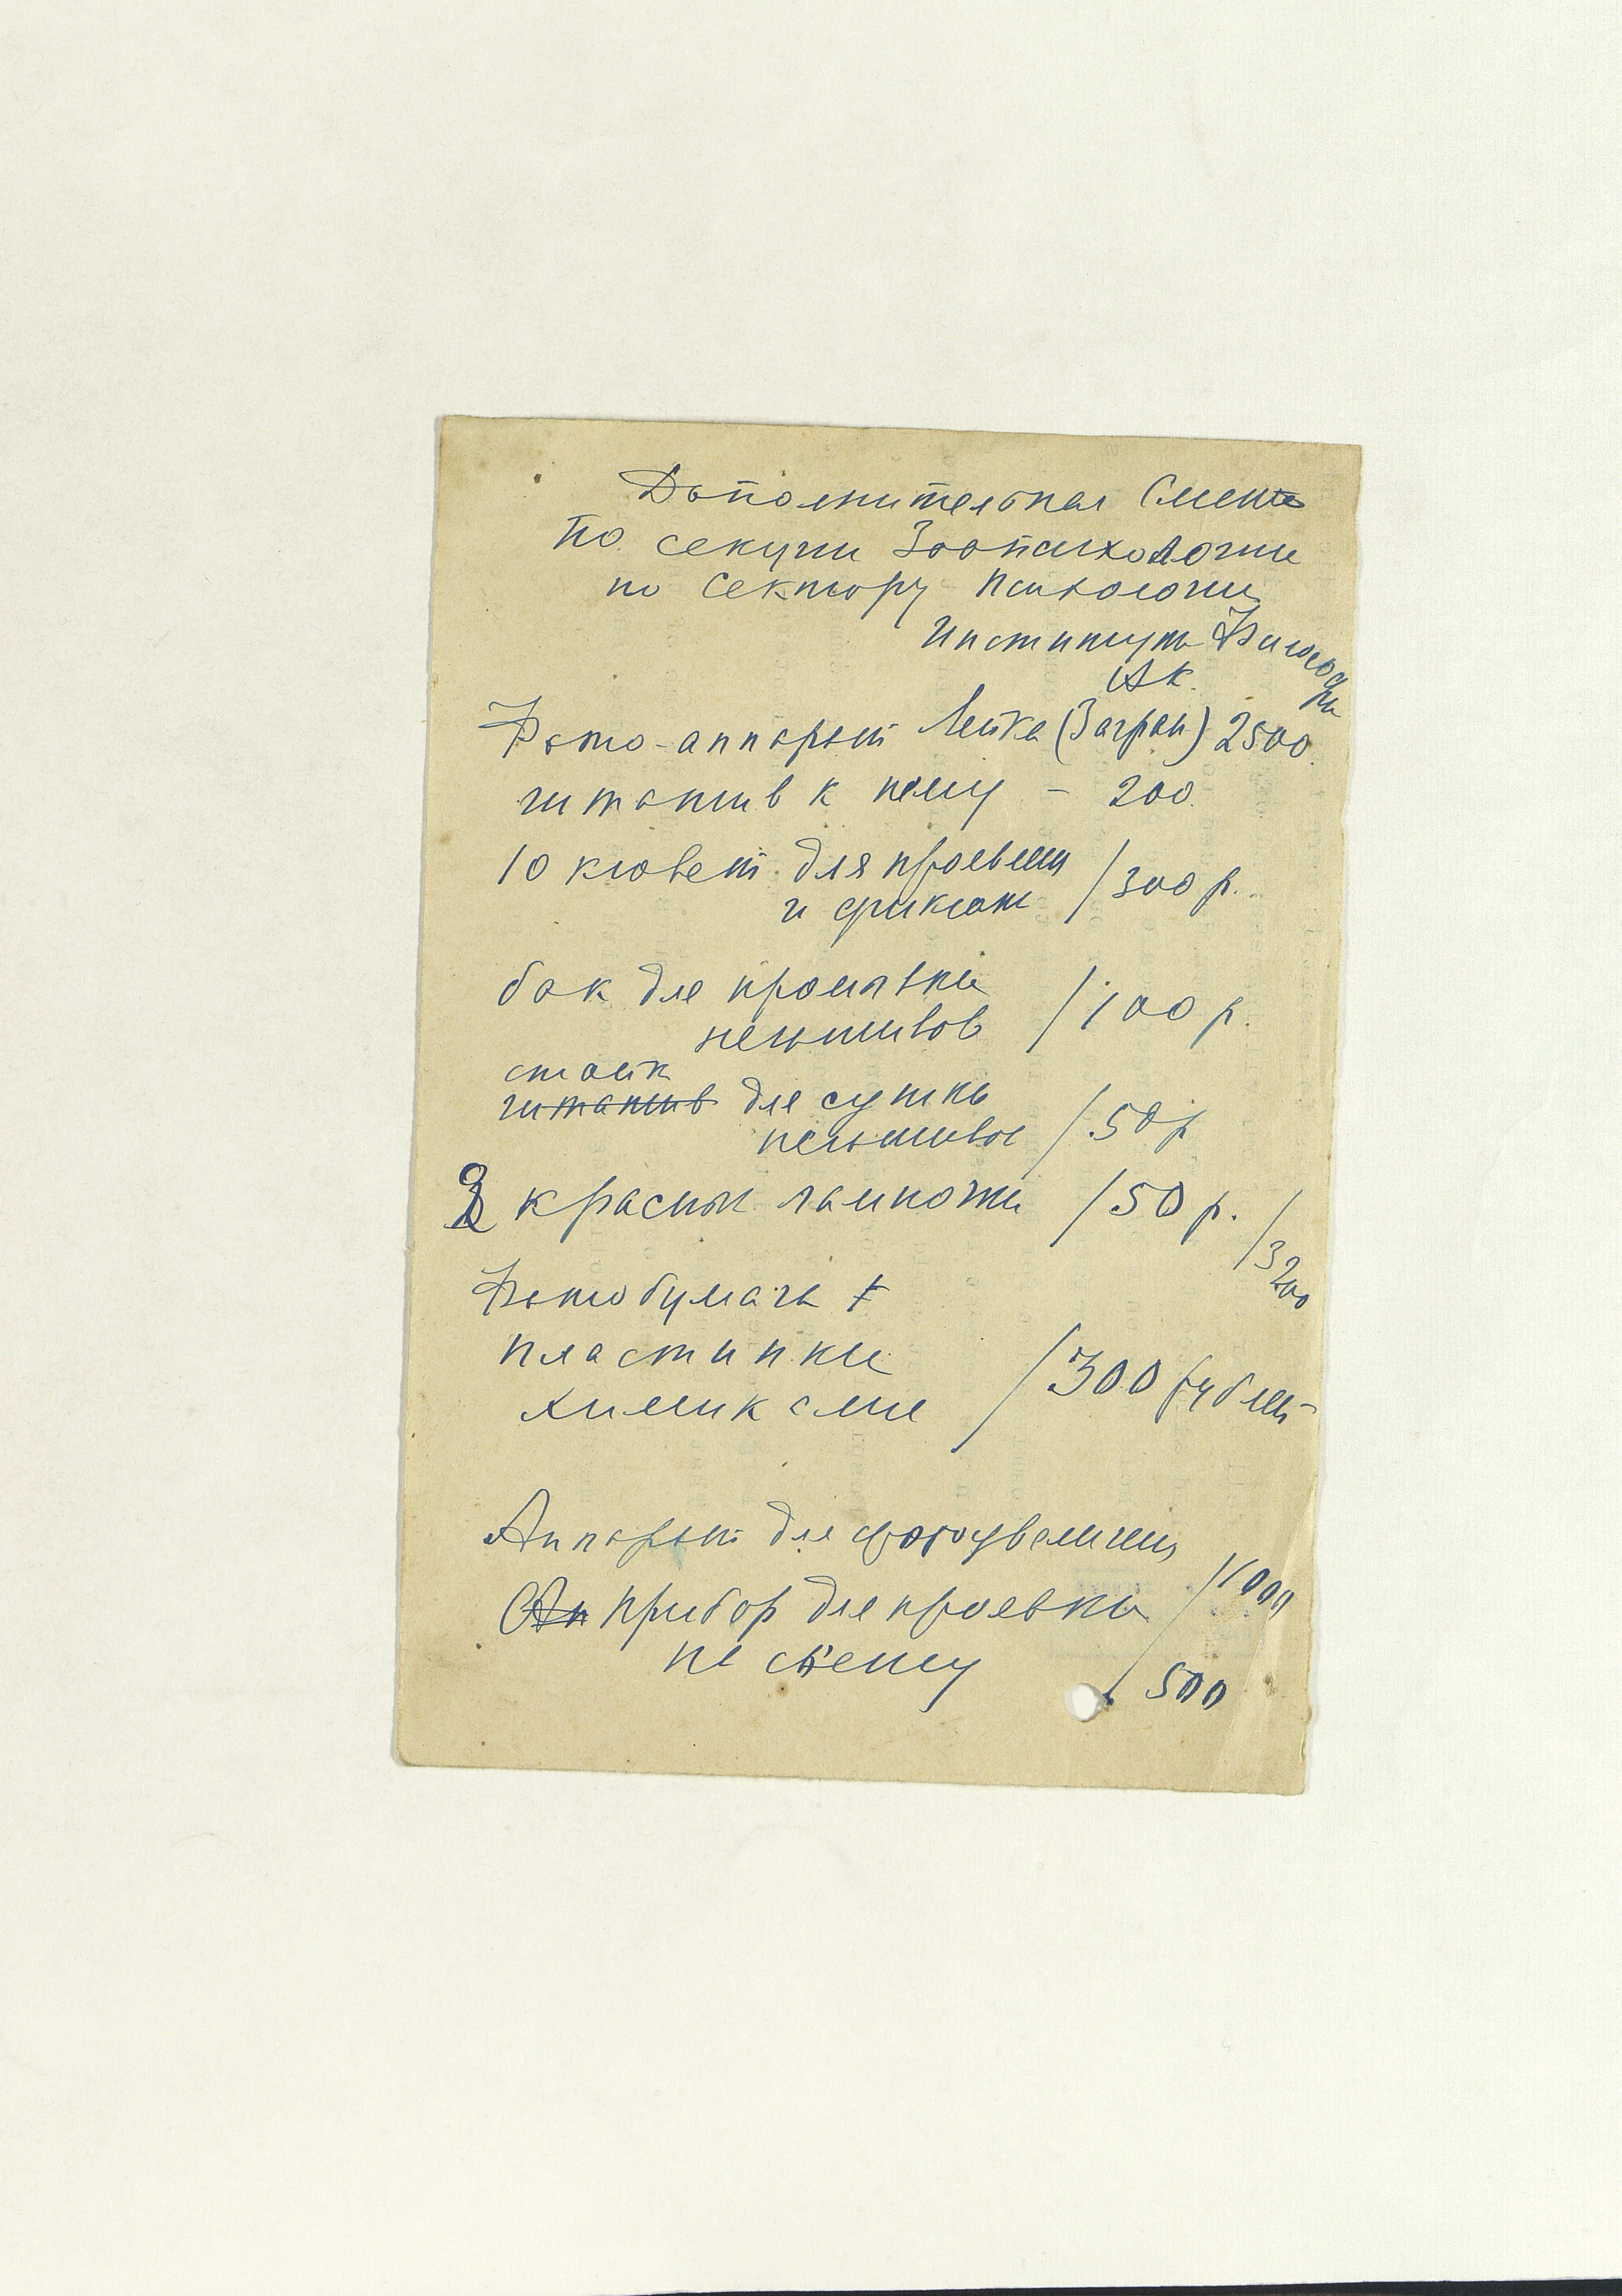 Дополнительная Смета
по секции Зоопсихологии
по Сектору Психологии
Института Философии
Ак.
Фото-аппарат Лейка (Загран) 2500.
штатив к нему – 200.
10 кювет для проявлен / 300 р.
и фиксаж
бак для промывки / 100 р.
негативов
стойк
штатив для сушки / 50 р
негативов
2 красн лампочки / 50 р. / 3200
Фотобумага +
пластинки / 300 рублей
химикалии
Аппарат для фотоувеличен / 1000
Ап прибор для проявки
на свету 500